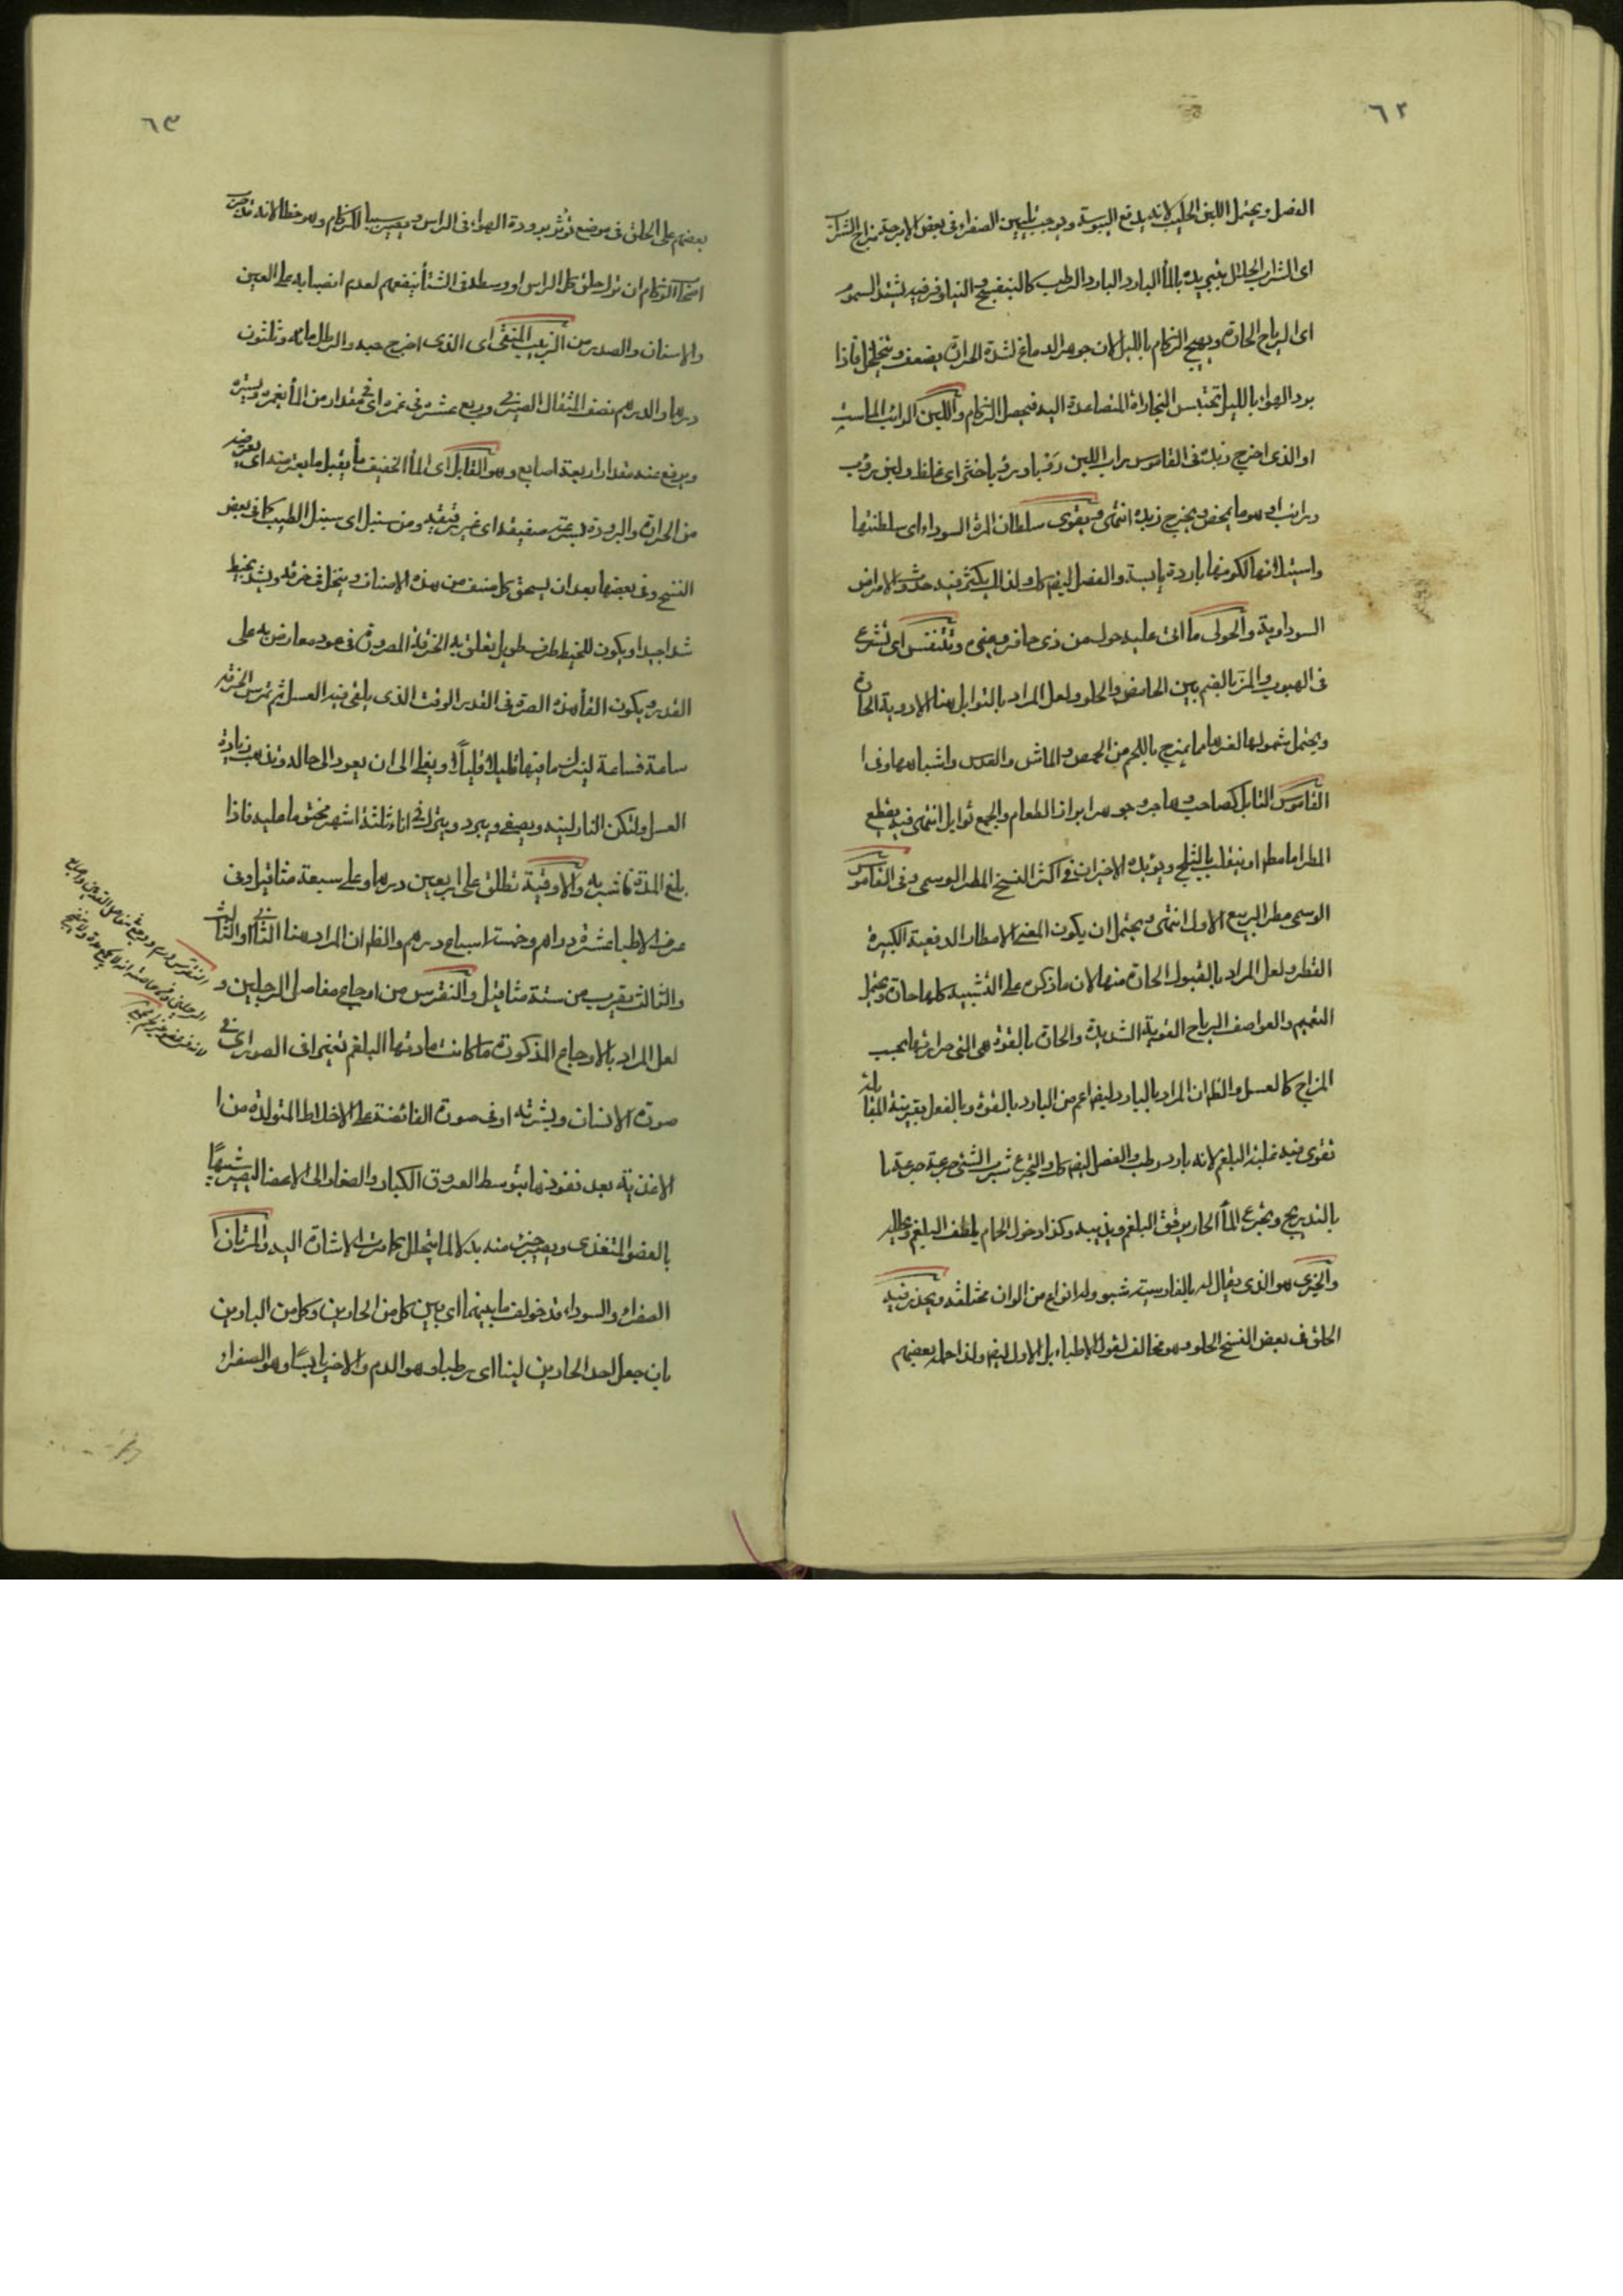 ٦٢
الفصل ويحتمل اللبن الحليب لانه يدفع اليبوسة ويوجب تليين الصفراء في بعض الامزجة مزاج الشراب
اى الشراب الحلال بتبريده بالماء البارد البارد الرطب كالبنفسج والنيلوفر فيه يشتد السموم
اى الرياح الحارة ويهيج الزكام بالليل لان جوهر الدماغ لشدة الحرارة يضعف ويتخلخل فاذا
برد الهواء بالليل تحتبس البخارات المتصاعدة اليه فيحصل الزكام واللبن الرائب الماست
او الذى اخرج زبده في القاموس راب اللبن روبا ورؤبا خثر اى غلظ ولبن روب
ورائب او هو ما يمخض ويخرج زبده انتهى ويقوى سلطان المرة السوداء اى سلطنتها
واستيلائها لكونها باردة يابسة والفصل ايضا كك ولذلك يكثر فيه حدوث الامراض
السوداوية والحولى ما اتى عليه حول من ذى حافر وغيره وتتنفس اى تشرع
في الهبوب والمز بالضم بين الحامض والحلو ولعل المراد بالتوابل هنا الادوية الحارة
ويحتمل شمولها لغيرها مما يمزج باللحم من الحمص والماش والعدس واشباهها وفى
القاموس التابل كصاحب وهاجر وجوهر ابزار الطعام والجمع توابل انتهى فيه يقطع
المطر اما مطلقا او ينقلب بالثلج ويؤيده الاخير ان في اكثر النسخ المطر الوسمى وفى القاموس
الوسمى مطر الربيع الاول انتهى ويحتمل ان يكون المعنى الامطار الدفعية الكبيرة
القطر ولعل المراد بالبقول الحارة منها لان ما ذكره على التشبيه كلها حارة ويحتمل
التعميم والعواصف الرياح القوية الشديدة والحارة بالقوة هى التى حرارتها بحسب
المزاج كالعسل والظ ان المراد بالبارد ايضا اعم من البارد بالقوة وبالفعل بقرينة المقابلة
تقوى فيه غلبة البلغم لانه بارد رطب والفصل ايضا كك والتجرع شرب الشئ جرعة جرعة
بالتدريج وتجرع الماء الحار يرقق البلغم ويذيبه وكذا دخول الحمام يلطف البلغم ويحلله
والخيرى هو الذى يقال له بالفارسية شبو وله انواع من الوان مختلفة ويحذر فيه
الحلق في بعض النسخ الحلو وهو مخالف لقول الاطباء بل الاول ايضا ولذا حمله بعضهم
٦٣
بعضهم على الحلق في موضع تؤثر برودة الهواء في الراس ويصير سببا للزكام وهو خطا لانه قد جرب
اصحاب الزكام ان ترك حلق كل الراس او وسطه في الشتاء ينفعهم لعدم انصبابه على العين
والاسنان والصدر من الزبيب المنقى اى الذى اخرج حبه والرطل مائة وثلثون
درهما والدرهم نصف المثقال الصيرفى وربع عشره في غمره اى في مقدار من الماء يغمره ويستره
ويرفع عنه مقدار اربعة اصابع وهو القابل اى الماء الخفيف ما يقبل ما يعترضه اى يعرضه
من الحرارة والبرودة بسرعة صفيقة اى غير رقيقة ومن سنبل اى سنبل الطيب كما في بعض
النسخ وفى بعضها بعد ان يسحق كل صنف من هذه الاصناف وينخل في خرقة ويشد بخيط
شدا جيدا ويكون للخيط طرف طويل تعلق به الخرقة المصرورة في عود معارض به على
القدر ويكون القاء هذه الصرة في القدر الوقت الذى يلقى فيه العسل ثم تمرس الخرقة
ساعة فساعة لينزل ما فيها قليلا قليلا ويغلى الى ان يعود الى حاله وتذهب زيادة
العسل ولتكن النار لينه ويصفى ويبرد ويترك في اناء ثلثة اشهر مختوما عليه فاذا
بلغ المدة فاشربه والاوقية تطلق على اربعين درهما وعلى سبعة مثاقيل وفى
عرف الاطباء عشرة دراهم وخمسة اسباع درهم والظ ان المراد هنا الثانى او الثالث
والثالث يقرب من ستة مثاقيل والنقرس من اوجاع مفاصل الرجلين و
لعل المراد بالاوجاع المذكورة ما كانت مادتها البلغم تغيرا في الصور اى في
صورة الانسان وبشرته او في صورة الفائضة على الاخلاط المتولدة من
الاغذية بعد نفوذها بتوسط العروق الكبار والصغار الى الاعضاء ليصير شبيها
بالعضو المتغذى ويصير جزء منه بدلا لما يتحلل كما مرت الاشارة اليه والمرتان
الصفراء والسوداء قد خولف ما بينهما اى بين كل من الحارين وكل من الباردين
بان جعل احد الحارين لينا اى رطبا وهو الدم والاخر يابسا وهو الصفراء